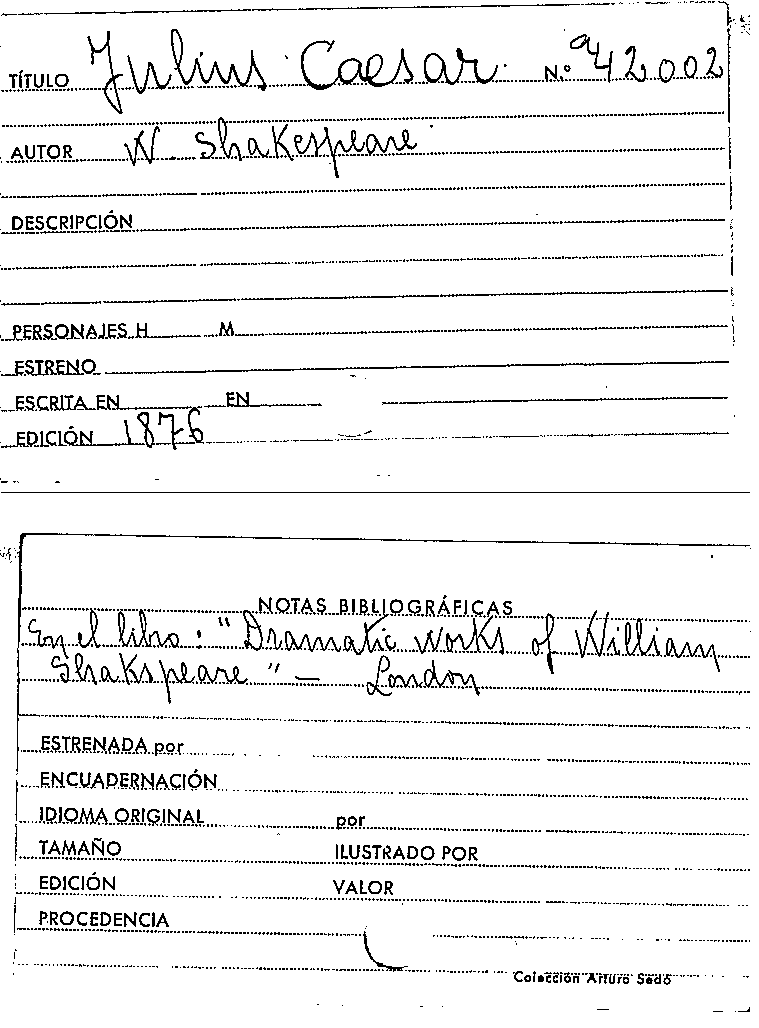 TÍTULO Julius Caesar. N.º a/42002
AUTOR W. Shakespeare
DESCRIPCIÓN
PERSONAJES H M
ESTRENO
ESCRITA EN EN
EDICIÓN 1876
NOTAS BIBLIOGRÁFICAS
En el libro: "Dramatic works of William
Shakspeare" — London
ESTRENADA por
ENCUADERNACIÓN
IDIOMA ORIGINAL por
TAMAÑO ILUSTRADO POR
EDICIÓN VALOR
PROCEDENCIA
Colección Arturo Sedó